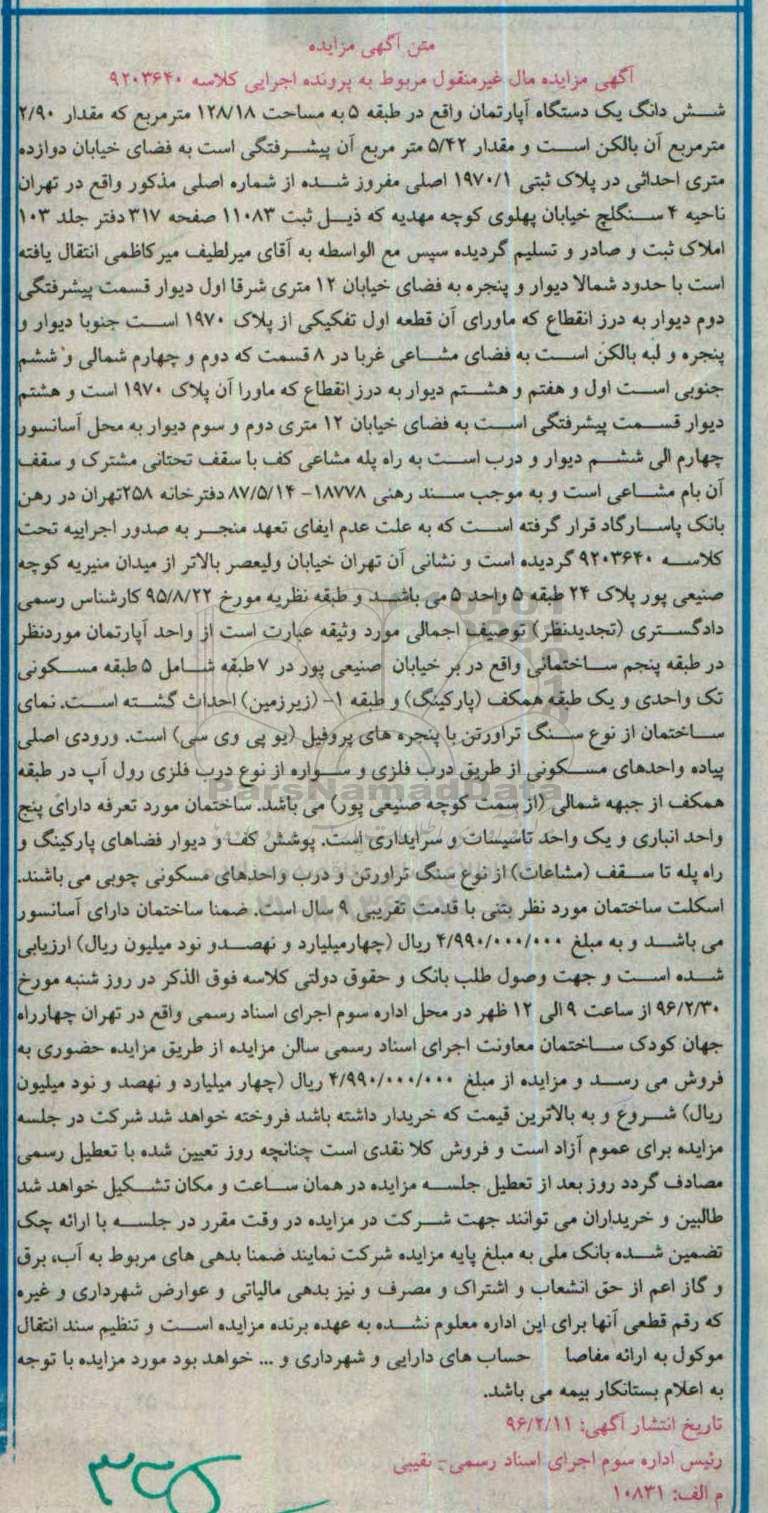 متن آگهی مزایده
آگهی مزایده مال غیرمنقول مربوط به پرونده اجرایی کلاسه ۹۲۰۳۶۴۰
شش دانگ یک دستگاه آپارتمان واقع در طبقه ۵ به مساحت ۱۲۸/۱۸ مترمربع که مقدار ۲/۹۰
مترمربع آن بالکن است و مقدار ۵/۴۲ متر مربع آن پیشرفتگی است به فضای خیابان دوازده
متری احداثی در پلاک ثبتی ۱۹۷۰/۱ اصلی مفروز شده از شماره اصلی مذکور واقع در تهران
ناحیه ۴ سنگلج خیابان پهلوی کوچه مهدیه که ذیل ثبت ۱۱۰۸۳ صفحه ۳۱۷ دفتر جلد ۱۰۳
املاک ثبت و صادر و تسلیم گردیده سپس مع الواسطه به آقای میرلطیف میرکاظمی انتقال یافته
است با حدود شمالا دیوار و پنجره به فضای خیابان ۱۲ متری شرقا اول دیوار قسمت پیشرفتگی
دوم دیوار به درز انقطاع که ماورای آن قطعه اول تفکیکی از پلاک ۱۹۷۰ است جنوبا دیوار و
پنجره و لبه بالکن است به فضای مشاعی غربا در ۸ قسمت که دوم و چهارم شمالی و ششم
جنوبی است اول و هفتم و هشتم دیوار به درز انقطاع که ماورا آن پلاک ۱۹۷۰ است و هشتم
دیوار قسمت پیشرفتگی است به فضای خیابان ۱۲ متری دوم و سوم دیوار به محل آسانسور
چهارم الی ششم دیوار و درب است به راه پله مشاعی کف با سقف تحتانی مشترک و سقف
آن بام مشاعی است و به موجب سند رهنی ۱۸۷۷۸- ۸۷/۵/۱۴ دفترخانه ۲۵۸تهران در رهن
بانک پاسارگاد قرار گرفته است که به علت عدم ایفای تعهد منجر به صدور اجراییه تحت
کلاسه ۹۲۰۳۶۴۰ گردیده است و نشانی آن تهران خیابان ولیعصر بالاتر از میدان منیریه کوچه
صنیعی پور پلاک ۲۴ طبقه ۵ واحد ۵ می باشد و طبقه نظریه مورخ ۹۵/۸/۲۲ کارشناس رسمی
دادگستری (تجدیدنظر) توصیف اجمالی مورد وثیقه عبارت است از واحد آپارتمان موردنظر
در طبقه پنجم ساختمانی واقع در بر خیابان صنیعی پور در ۷ طبقه شامل ۵ طبقه مسکونی
تک واحدی و یک طبقه همکف (پارکینگ) و طبقه ۱- (زیرزمین) احداث گشته است. نمای
ساختمان از نوع سنگ تراورتن با پنجره های پروفیل (یو پی وی سی) است. ورودی اصلی
پیاده واحدهای مسکونی از طریق درب فلزی و سواره از نوع درب فلزی رول آپ در طبقه
ParsNamadData
همکف از جبهه شمالی (از سمت کوچه صنیعی پور) می باشد. ساختمان مورد تعرفه دارای پنج
واحد انباری و یک واحد تاسیسات و سرایداری است. پوشش کف و دیوار فضاهای پارکینگ و
راه پله تا سقف (مشاعات) از نوع سنگ تراورتن و درب واحدهای مسکونی چوبی می باشند.
اسکلت ساختمان مورد نظر بتنی با قدمت تقریبی ۹ سال است. ضمنا ساختمان دارای آسانسور
می باشد و به مبلغ ۴/۹۹۰/۰۰۰/۰۰۰ ریال (چهارمیلیارد و نهصدو نود میلیون ریال) ارزیابی
شده است و جهت وصول طلب بانک و حقوق دولتی کلاسه فوق الذکر در روز شنبه مورخ
۹۶/۲/۳۰ از ساعت ۹ الی ۱۲ ظهر در محل اداره سوم اجرای اسناد رسمی واقع در تهران چهارراه
جهان کودک ساختمان معاونت اجرای اسناد رسمی سالن مزایده از طریق مزایده حضوری به
فروش می رسد و مزایده از مبلغ ۴/۹۹۰/۰۰۰/۰۰۰ ریال (چهار میلیارد و نهصد و نود میلیون
ریال) شروع و به بالاترین قیمت که خریدار داشته باشد فروخته خواهد شد شرکت در جلسه
مزایده برای عموم آزاد است و فروش کلا نقدی است چنانچه روز تعیین شده با تعطیل رسمی
مصادف گردد روز بعد از تعطیل جلسه مزایده در همان ساعت و مکان تشکیل خواهد شد
طالبین و خریداران می توانند جهت شرکت در مزایده در وقت مقرر در جلسه با ارائه چک
تضمین شده بانک ملی به مبلغ پایه مزایده شرکت نمایند ضمنا بدهی های مربوط به آب، برق
و گاز اعم از حق انشعاب و اشتراک و مصرف و نیز بدهی مالیاتی و عوارض شهرداری و غیره
که رقم قطعی آنها برای این اداره معلوم نشده به عهده برنده مزایده است و تنظیم سند انتقال
موکول به ارائه مفاصا حساب های دارایی و شهرداری و ... خواهد بود مورد مزایده با توجه
به اعلام بستانکار بیمه می باشد.
تاریخ انتشار آگهی: ۹۶/۲/۱۱
رئیس اداره سوم اجرای اسناد رسمی- نقیبی
م الف: ۱۰۸۳۱